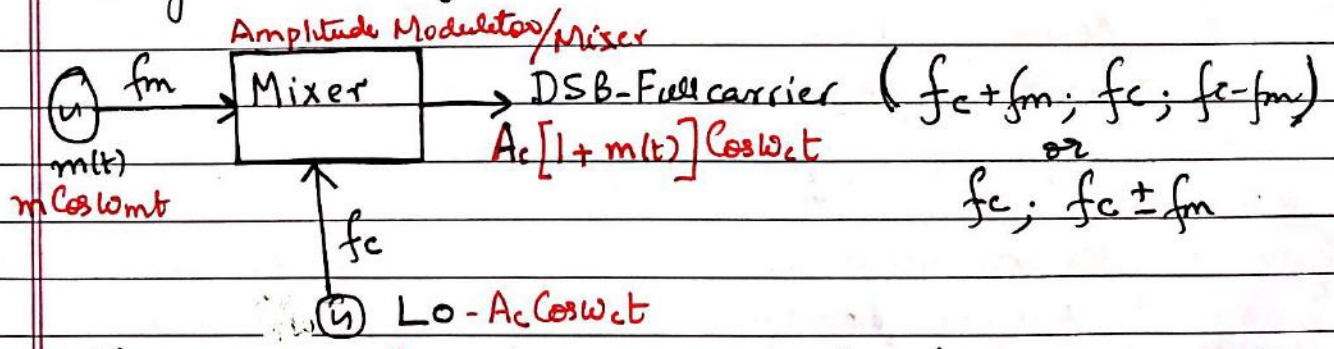 Amplitude Modulator/Mixer
fm Mixer DSB-Full carrier (fc+fm; fc; fc-fm)
m(t) Ac[1+m(t)]Cosωct or
mCosωmt fc; fc±fm
fc
LO - AcCosωct